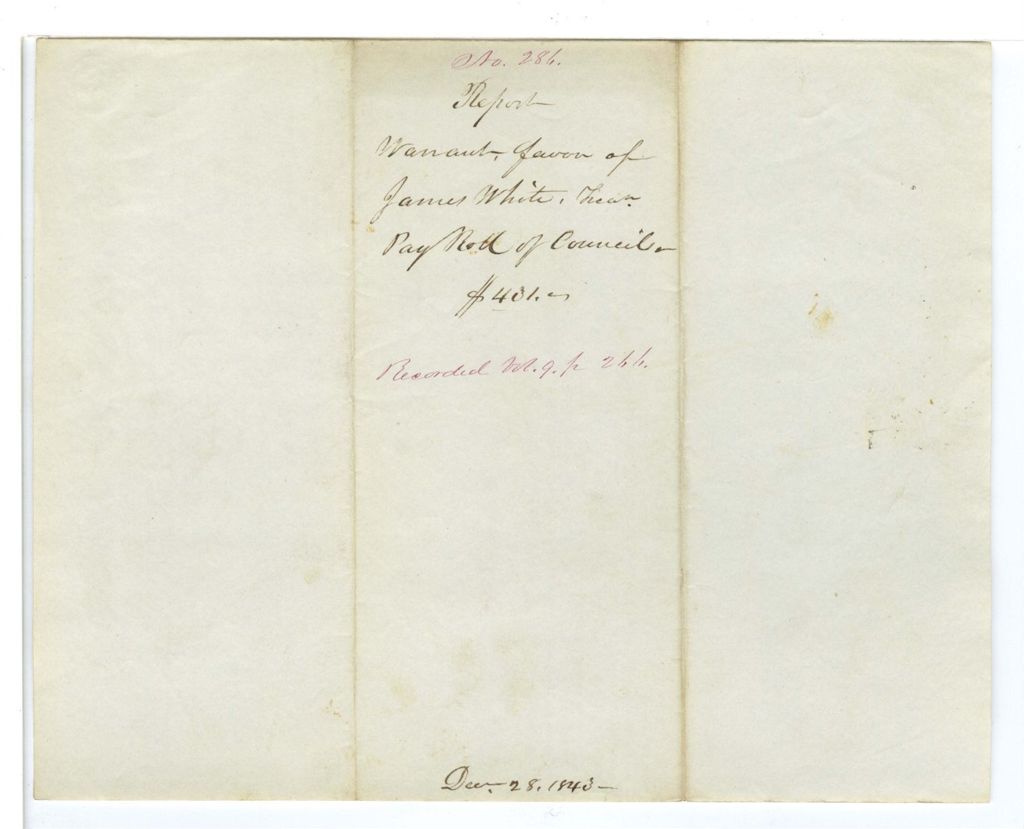 No. 286.
Report
Warrant, favor of
James White, Trear.
Pay Roll of Council
$431.
Recorded Vol. 9. p 266.
Dec. 28. 1843